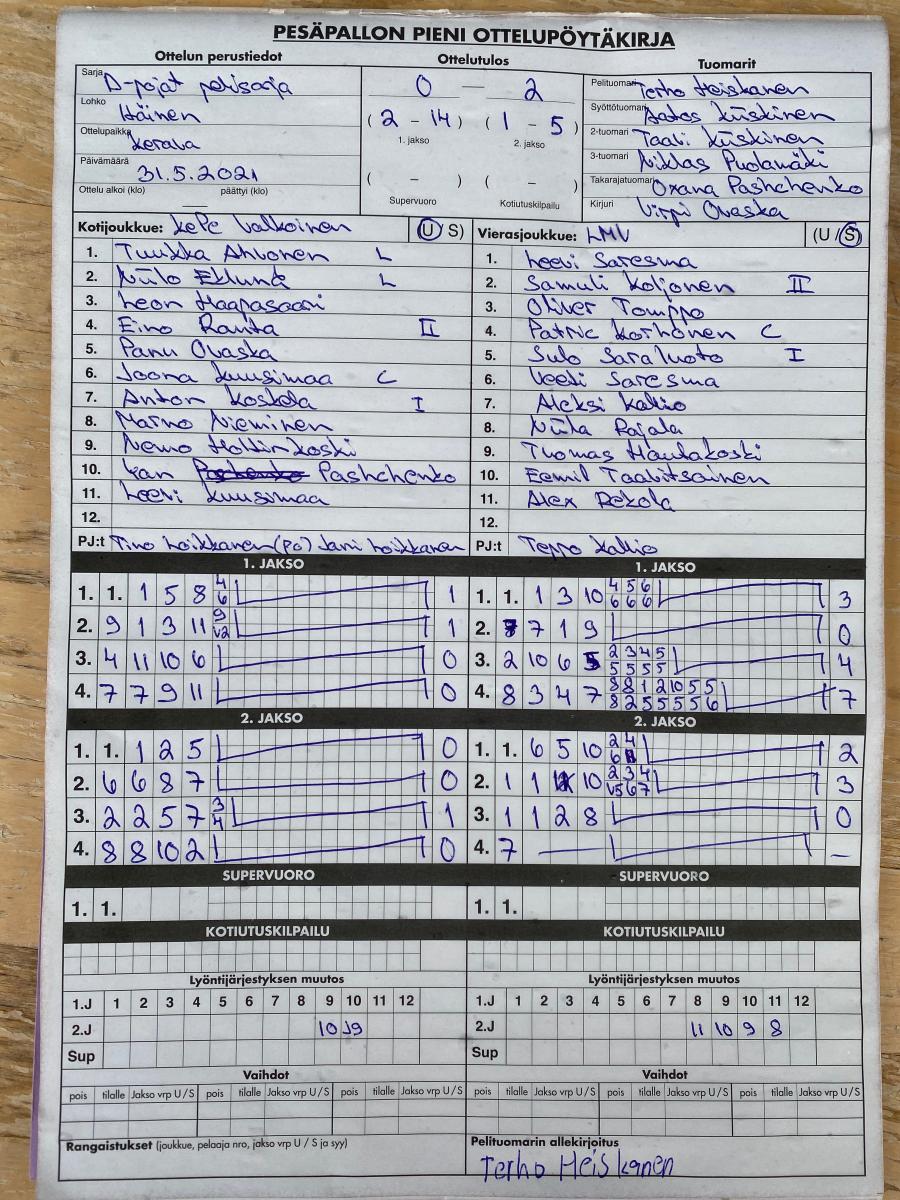 PESÄPALLON PIENI OTTELUPÖYTÄKIRJA
Ottelun perustiedot Ottelutulos Tuomarit
Sarja D-pojat pelisarja 0 — 2 Pelituomari Terho Heiskanen
Lohko Itäinen Syöttötuomari Aatos Kiiskinen
Ottelupaikka Kerava (2 - 14) (1 - 5) 2-tuomari Taavi Kiiskinen
1. jakso 2. jakso
Päivämäärä 31.5.2021 3-tuomari Niklas Pudamäki
Ottelu alkoi (klo) päättyi (klo) ( - ) ( - ) Takarajatuomari Oxana Pashchenko
Supervuoro Kotiutuskilpailu Kirjuri Virpi Ovaska
Kotijoukkue: KePe Valkoinen (U/S) Vierasjoukkue: LMV (U/S)
1. Tuukka Ahvonen L 1. Leevi Saresma
2. Niilo Eklund L 2. Samuli Koljonen II
3. Leon Haapasaari 3. Oliver Tomppo
4. Eino Ranta II 4. Patric Korhonen C
5. Panu Ovaska 5. Sulo Saraluoto I
6. Joona Kuusimaa C 6. Veeti Saresma
7. Anton Koskela I 7. Aleksi Kallio
8. Marno Nieminen 8. Niila Rajala
9. Nemo 9. Tuomas Hautakoski
10. Pashchenko 10. Eemil Taavitsainen
11. Leevi Kuusimaa 11. Alex Rekola
12. 12.
PJ:t Tino Loikkanen (po) Jani Loikkanen PJ:t Teppo Kallio
1. JAKSO 1. JAKSO
1. 1. 1 5 8 4 6 1 1. 1. 1 3 10 4 5 6 6 6 6 3
2. 9 1 3 11 9 V2 1 2. 7 7 1 9 0
3. 4 11 10 6 0 3. 2 10 6 5 2 3 4 5 5 5 5 5 4
4. 7 7 9 11 0 4. 8 3 4 7 8 8 1 2 10 5 5 8 2 5 5 5 5 6 7
2. JAKSO 2. JAKSO
1. 1. 1 2 5 0 1. 1. 6 5 10 2 4 6 2
2. 6 6 8 7 0 2. 1 1 10 2 3 4 V5 6 7 3
3. 2 2 5 7 3 4 1 3. 1 1 2 8 0
4. 8 8 10 2 0 4. 7 — –
SUPERVUORO SUPERVUORO
1. 1. 1. 1.
KOTIUTUSKILPAILU KOTIUTUSKILPAILU
Lyöntijärjestyksen muutos Lyöntijärjestyksen muutos
1.J 1 2 3 4 5 6 7 8 9 10 11 12 1.J 1 2 3 4 5 6 7 8 9 10 11 12
2.J 10 9 2.J 11 10 9 8
Sup Sup
Vaihdot Vaihdot
pois tilalle Jakso vrp U/S pois tilalle Jakso vrp U/S pois tilalle Jakso vrp U/S pois tilalle Jakso vrp U/S pois tilalle Jakso vrp U/S pois tilalle Jakso vrp U/S
Rangaistukset (joukkue, pelaaja nro, jakso vrp U / S ja syy) Pelituomarin allekirjoitus
Terho Heiskanen